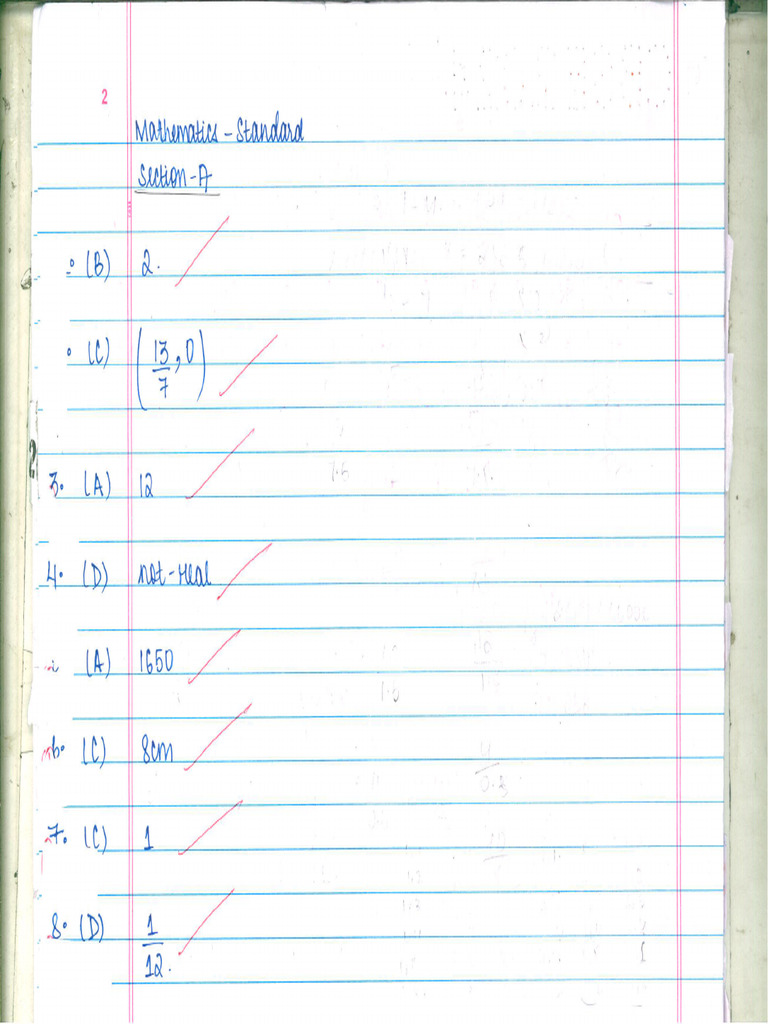 2
Mathematics - Standard
Section-A
(B) 2.
(C) (13/7, 0)
3. (A) 12
4. (D) not-real
(A) 1650
6. (C) 8cm
7. (C) 1
8. (D) 1/12.